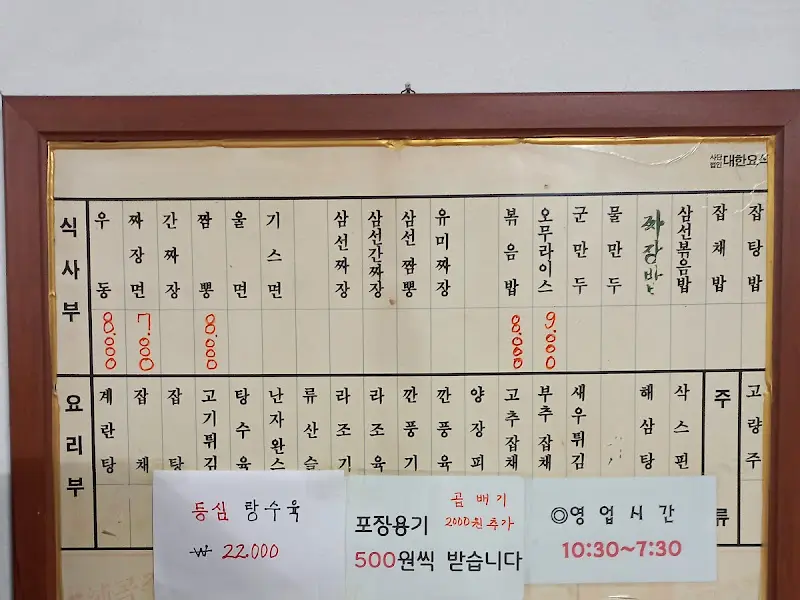 사단법인 대한요식
식사부
우동 8.000
짜장면 7.000
간짜장
짬뽕 8.000
울면
기스면
삼선짜장
삼선간짜장
삼선짬뽕
유미짜장
볶음밥 8.000
오무라이스 9.000
군만두
물만두
짜장밥
삼선볶음밥
잡채밥
잡탕밥
요리부
계란탕
잡채
잡탕
고기튀김
탕수육
난자완스
류산슬
라조기
라조육
깐풍기
깐풍육
양장피
고추잡채
부추잡채
새우튀김
해삼탕
삭스핀
주류
고량주
등심 탕수육
₩ 22.000
포장용기
500원씩 받습니다
곱배기
2000원 추가
◎영업시간
10:30~7:30